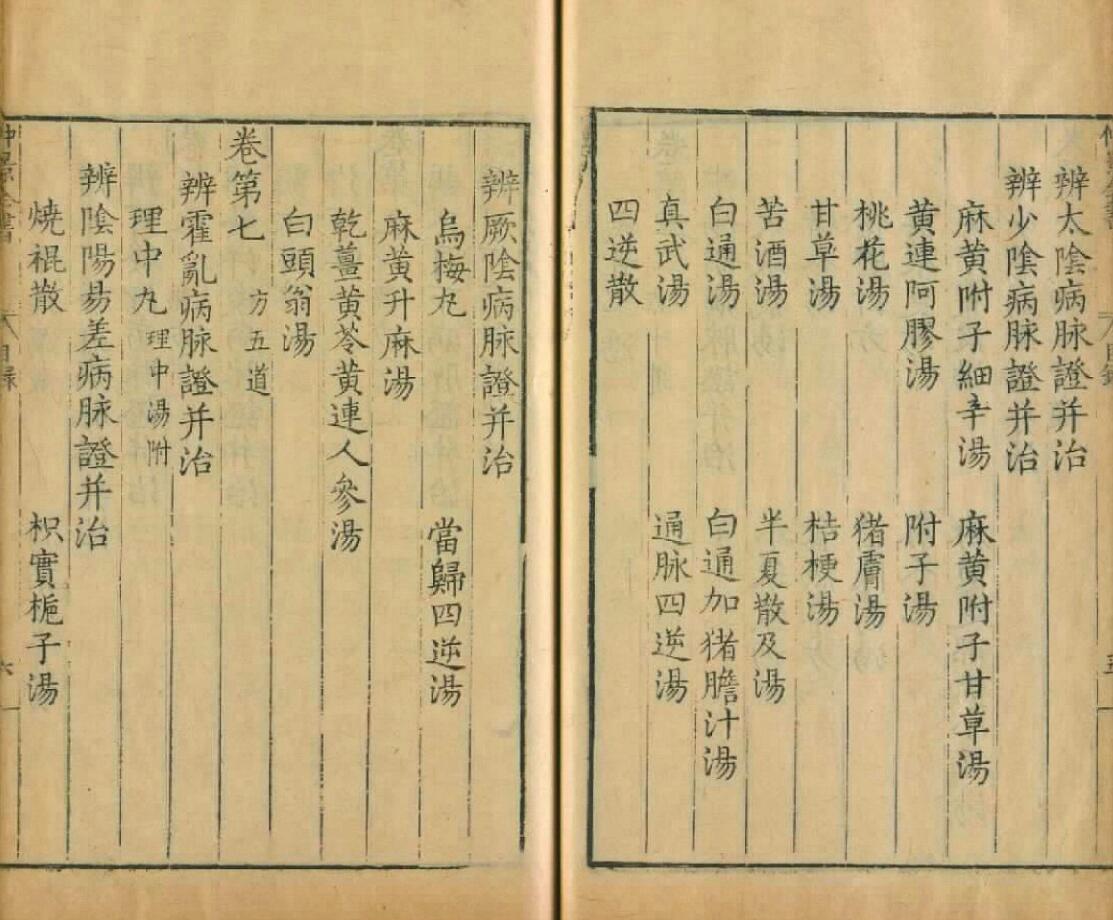 辨太陰病脉證并治
辨少陰病脉證并治
麻黄附子細辛湯 麻黄附子甘草湯
黄連阿膠湯 附子湯
桃花湯 猪膚湯
甘草湯 桔梗湯
苦酒湯 半夏散及湯
白通湯 白通加猪膽汁湯
真武湯 通脉四逆湯
四逆散
辨厥陰病脉證并治
烏梅丸 當歸四逆湯
麻黄升麻湯
乾薑黄芩黄連人參湯
白頭翁湯
卷第七 方五道
辨霍亂病脉證并治
理中丸 理中湯附
辨陰陽易差病脉證并治
燒裩散 枳實梔子湯
仲景全書 目録 六